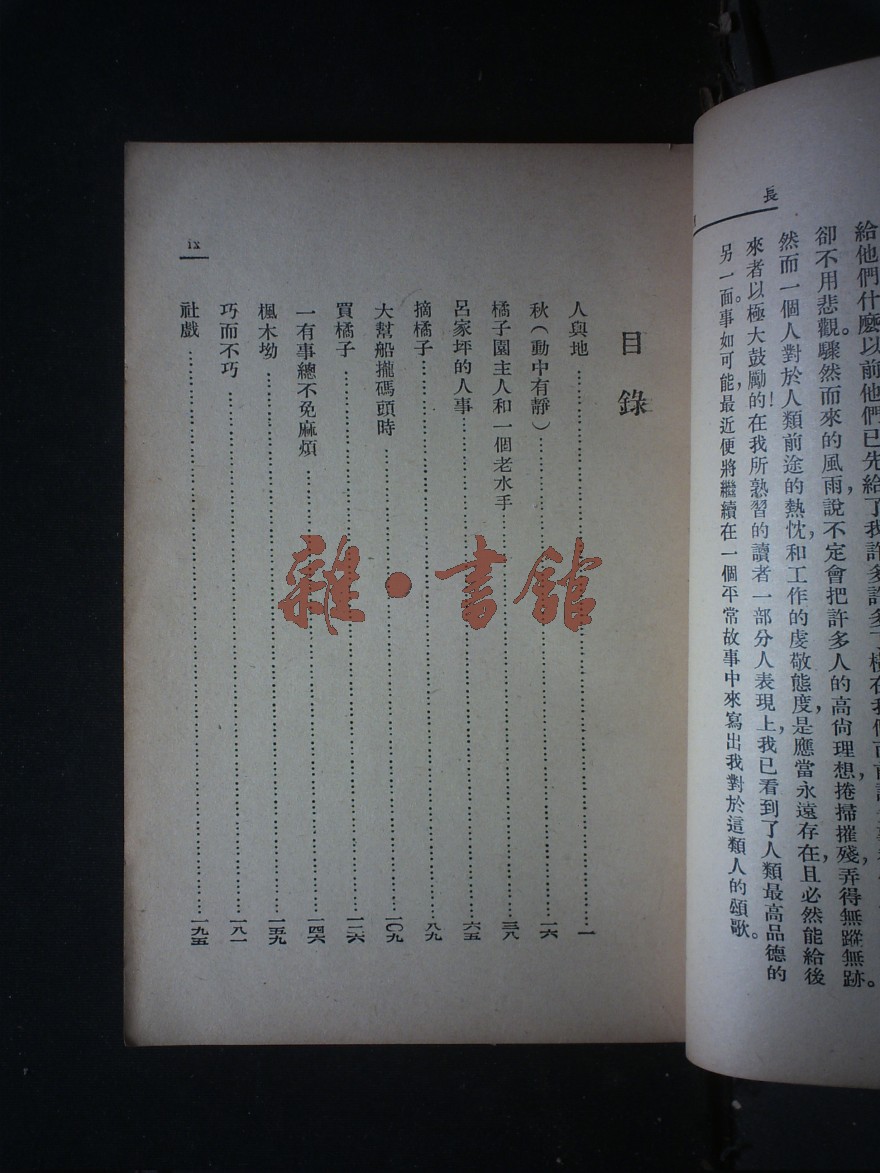 長
給他們什麼以前他們已先給了我許多許多
卻不用悲觀。驟然而來的風雨，說不定會把許多人的高尚理想，捲掃摧殘，弄得無蹤無跡。
然而一個人對於人類前途的熱忱，和工作的虔敬態度，是應當永遠存在，且必然能給後
來者以極大鼓勵的！在我所熟習的讀者一部分人表現上，我已看到了人類最高品德的
另一面。事如可能，最近便將繼續在一個平常故事中來寫出我對於這類人的頌歌。
目錄
人與地……一
秋（動中有靜）……一六
橘子園主人和一個老水手……三八
呂家坪的人事……六五
摘橘子……八九
大幫船攏碼頭時……一〇九
買橘子……一二六
一有事總不免麻煩……一四六
楓木坳……一五九
巧而不巧……一八一
社戲……一九五
ix
雜·書館